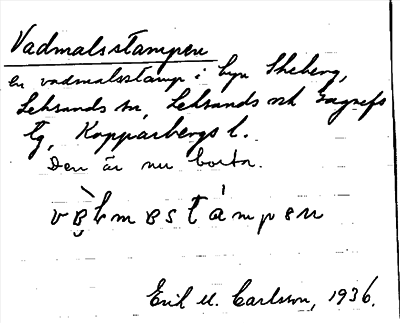 Vadmalsstampen
en vadmalsstamp i byn Skeberg,
Leksands sn, Leksands och Gagnefs
tg, Kopparbergs l.
Den är nu borta.
Erik M. Carlsson, 1936.